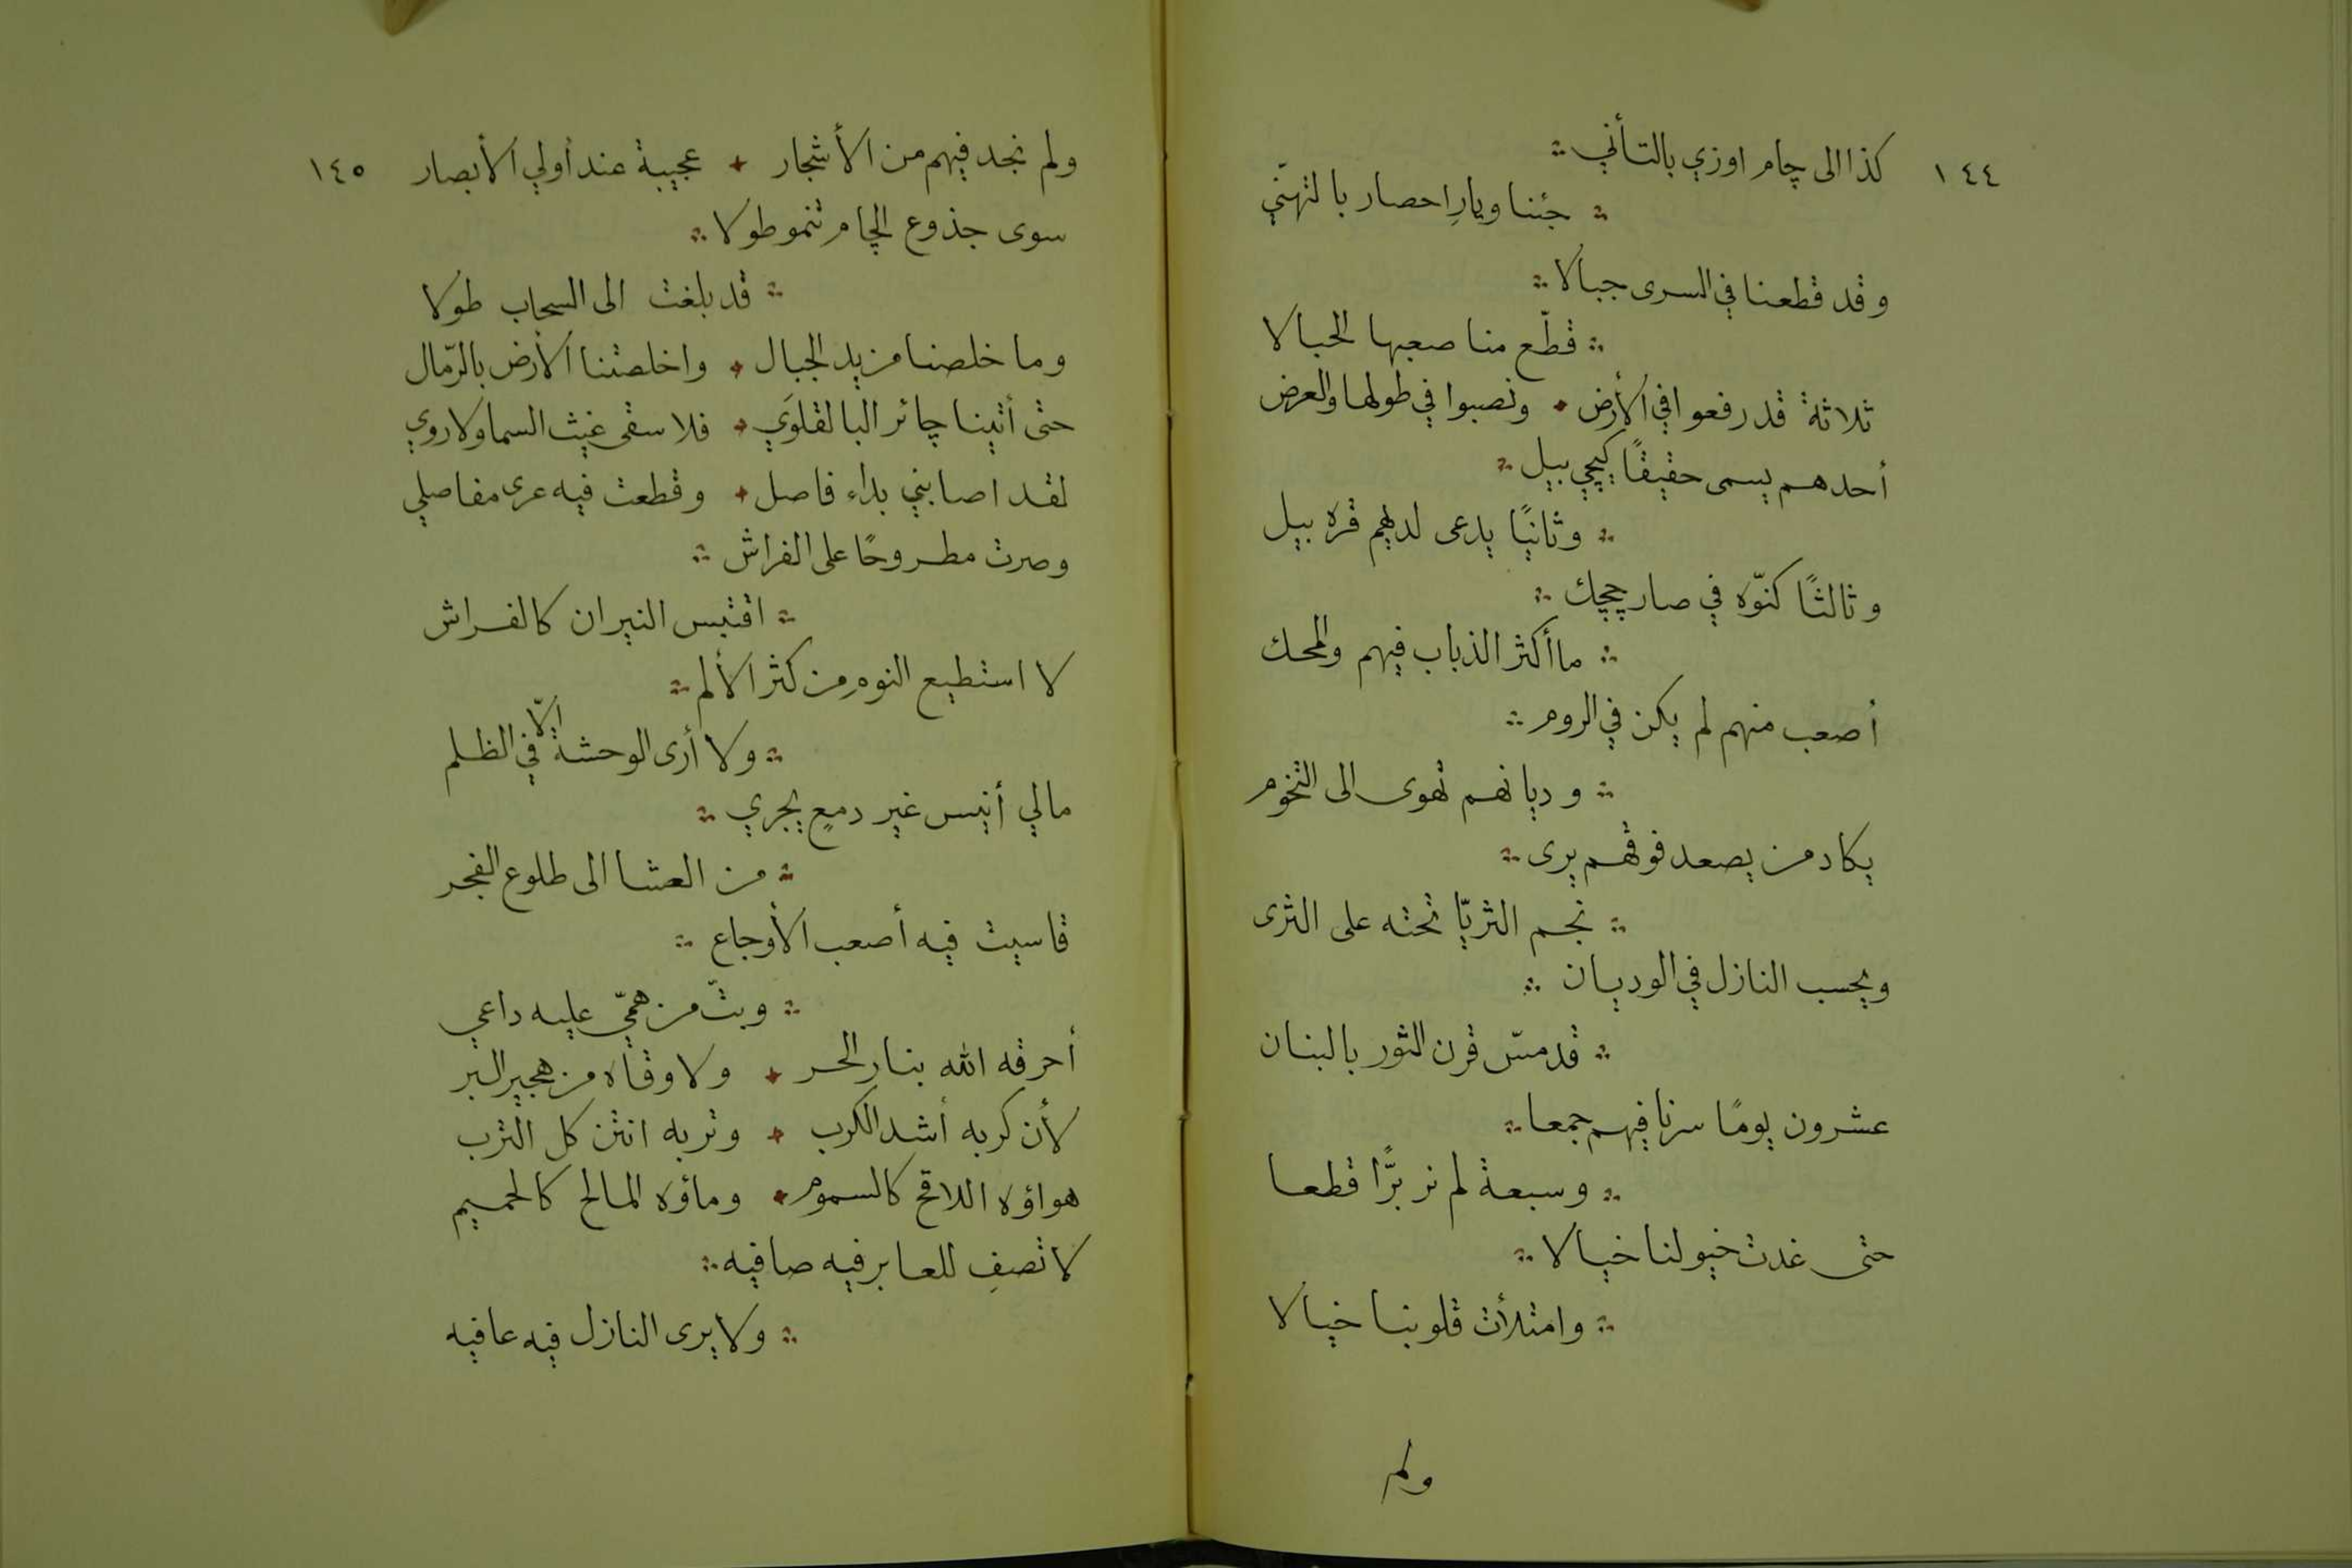 ١٤٤
كذا الى چام اوزي بالتأني
جئنا ويارِ احصار بالتهنّي
وقد قطعنا في السرى جبالا
قطّع منا صعبها الحبالا
ثلاثة قد رفعوا في الأرض ونصبوا في طولها والعرض
أحدهم يسمى حقيقًا كيچي بيل
وثانيًا يدعى لديهم قره بيل
وثالثًا كنّوه في صارچچك
ما أكثر الذباب فيهم والمحك
أصعب منهم لم يكن في الروم
وديانهم تهوى الى التخوم
يكاد من يصعد فوقهم يرى
نجم الثريّا تحته على الثرى
ويحسب النازل في الوديان
قد مسّ قرن الثور بالبنان
عشرون يومًا سرنا فيهم جمعا
وسبعة لم نر برًّا قطعا
حتى غدت خيولنا خيالا
وامتلأت قلوبنا خيالا
ولم
١٤٥
ولم نجد فيهم من الأشجار عجيبة عند أولي الأبصار
سوى جذوع الچام تنمو طولا
قد بلغت الى السحاب طولا
وما خلصنا من يد الجبال واخلصتنا الأرض بالرّمال
حتى أتينا چائر البالقلوَي فلا سقى غيث السما ولا روي
لقد اصابني بداء فاصل وقطعت فيه عرى مفاصلي
وصرت مطروحًا على الفراش
اقتبس النيران كالفراش
لا استطيع النوم من كثر الألم
ولا أرى الوحشة إلّا في الظلم
مالي أنيس غير دمعٍ يجري
من العشا الى طلوع الفجر
قاسيت فيه أصعب الأوجاع
وبتّ من همّي عليه داعي
أحرقه الله بنار الحر ولا وقاه من هجير البر
لأن كربه أشد الكرب وتربه انتن كل الترب
هواؤه اللاقح كالسموم وماؤه المالح كالحميم
لا تصفِ للعابر فيه صافيه
ولا يرى النازل فيه عافيه